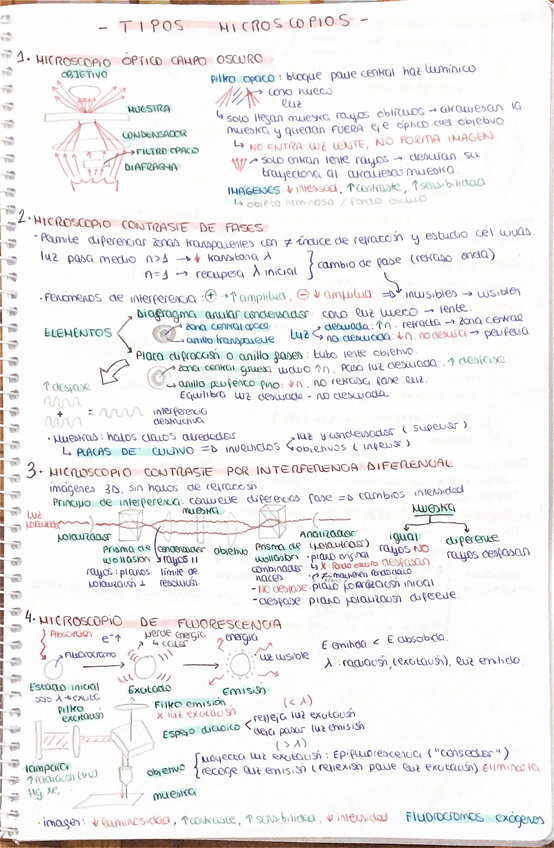 - TIPOS MICROSCOPIOS -
1. MICROSCOPIO ÓPTICO CAMPO OSCURO
OBJETIVO
MUESTRA
CONDENSADOR
FILTRO OPACO
DIAFRAGMA
Filtro opaco: bloquea parte central haz lumínico
cono hueco
luz
↳ solo llegan muestra rayos oblicuos → atraviesan la
muestra y quedan FUERA eje óptico del objetivo
↳ NO ENTRA LUZ LENTE, NO FORMA IMAGEN
solo entran lente rayos → desvían su
trayectoria al atravesar muestra.
IMÁGENES ↓ intensid, ↑ contraste, ↑ sensibilidad
↳ objeto luminoso / fondo oscuro
2. MICROSCOPIO CONTRASTE DE FASES
· Permite diferenciar zonas transparentes con ≠ índice de refracción y estudio cél vivas.
luz pasa medio n>1 → ↓ λ
n=1 → recupera λ inicial } cambio de fase (retraso onda)
· Fenómenos de interferencia: + → ↑ amplitud, - ↓ amplitud ⇒ invisibles → visibles
ELEMENTOS
Diafragma anular condensador: cono luz hueco → lente.
zona central opaca
anillo transparente
Luz desviada: ↑n. refracta → zona central
no desviada: ↓n. no desvía → periferia
Placa difracción o anillo fases: tubo lente objetivo.
zona central gruesa vidrio ↑n. Pasa luz desviada. ↑ desfase
anillo periférico fino: ↓n. no retrasa fase luz.
Equilibra luz desviada - no desviada.
↑ desfase
+ = interferencia
destructiva
· Muestras: halos claros alrededor
↳ PLACAS DE CULTIVO ⇒ invertidos
luz y condensador (superior)
objetivos (inferior)
3. MICROSCOPIO CONTRASTE POR INTERFERENCIA DIFERENCIAL
imágenes 3D, sin halos de refracción.
Principio de interferencia: convierte diferencias fase ⇒ cambios intensidad
luz
polarizada
polarizador
Prisma de
wollaston
rayos: planos
polarización ⊥
condensador
rayos ||
límite de
resolución.
muestra
objetivo
Prisma de
wollaston
combinador
haces
Analizador
(polarizador)
· plano original
- NO desfase: plano polarización inicial
- desfase: plano polarización diferente.
Muestra
igual
rayos NO
desfasan
diferente
rayos desfasan
4. MICROSCOPIO DE FLUORESCENCIA
Absorción
e⁻↑
fluorocromo
Estado inicial
solo λ → excita
pierde energía
↳ calor
Excitado
energía
luz visible
Emisión
E emitida < E absorbida.
λ: radiación (excitación), luz emitida
Filtro
excitación
Filtro emisión
x luz excitación
Espejo dicroico
(< λ)
refleja luz excitación
deja pasar luz emisión
(> λ)
lámpara
↑ radiación (UV)
Hg, Xe,
objetivo
proyecta luz excitación: Epifluorescencia ("condensador")
recoge luz emisión (reflexión parte luz excitación) Eliminarla
muestra
· imagen: ↓ luminosidad, ↑ contraste, ↑ sensibilidad, ↓ intensidad
Fluorocromos exógenos